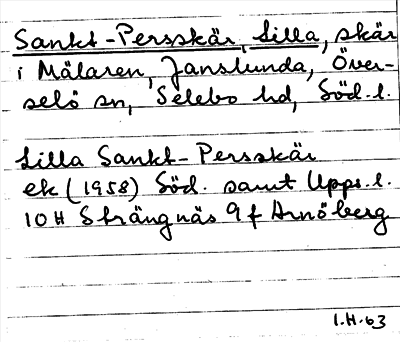 Sankt-Persskär, Lilla, skär
i Mälaren, Janslunda, Över-
selö sn, Selebo hd, Söd. l.
Lilla Sankt-Persskär
ek (1958) Söd. samt Upps. l.
10 H Strängnäs 9 f Arnöberg
I.H.63